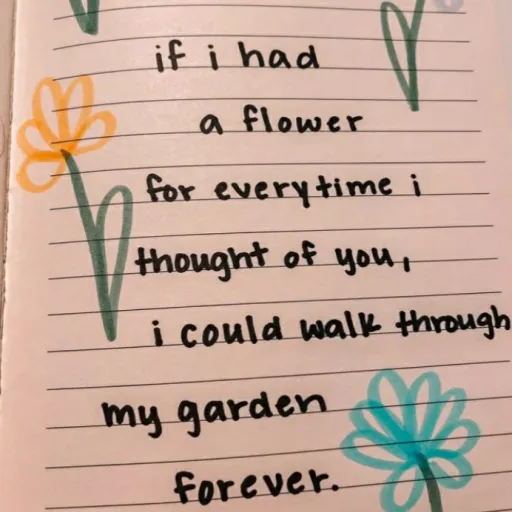 if i had
a flower
for everytime i
thought of you,
i could walk through
my garden
forever.